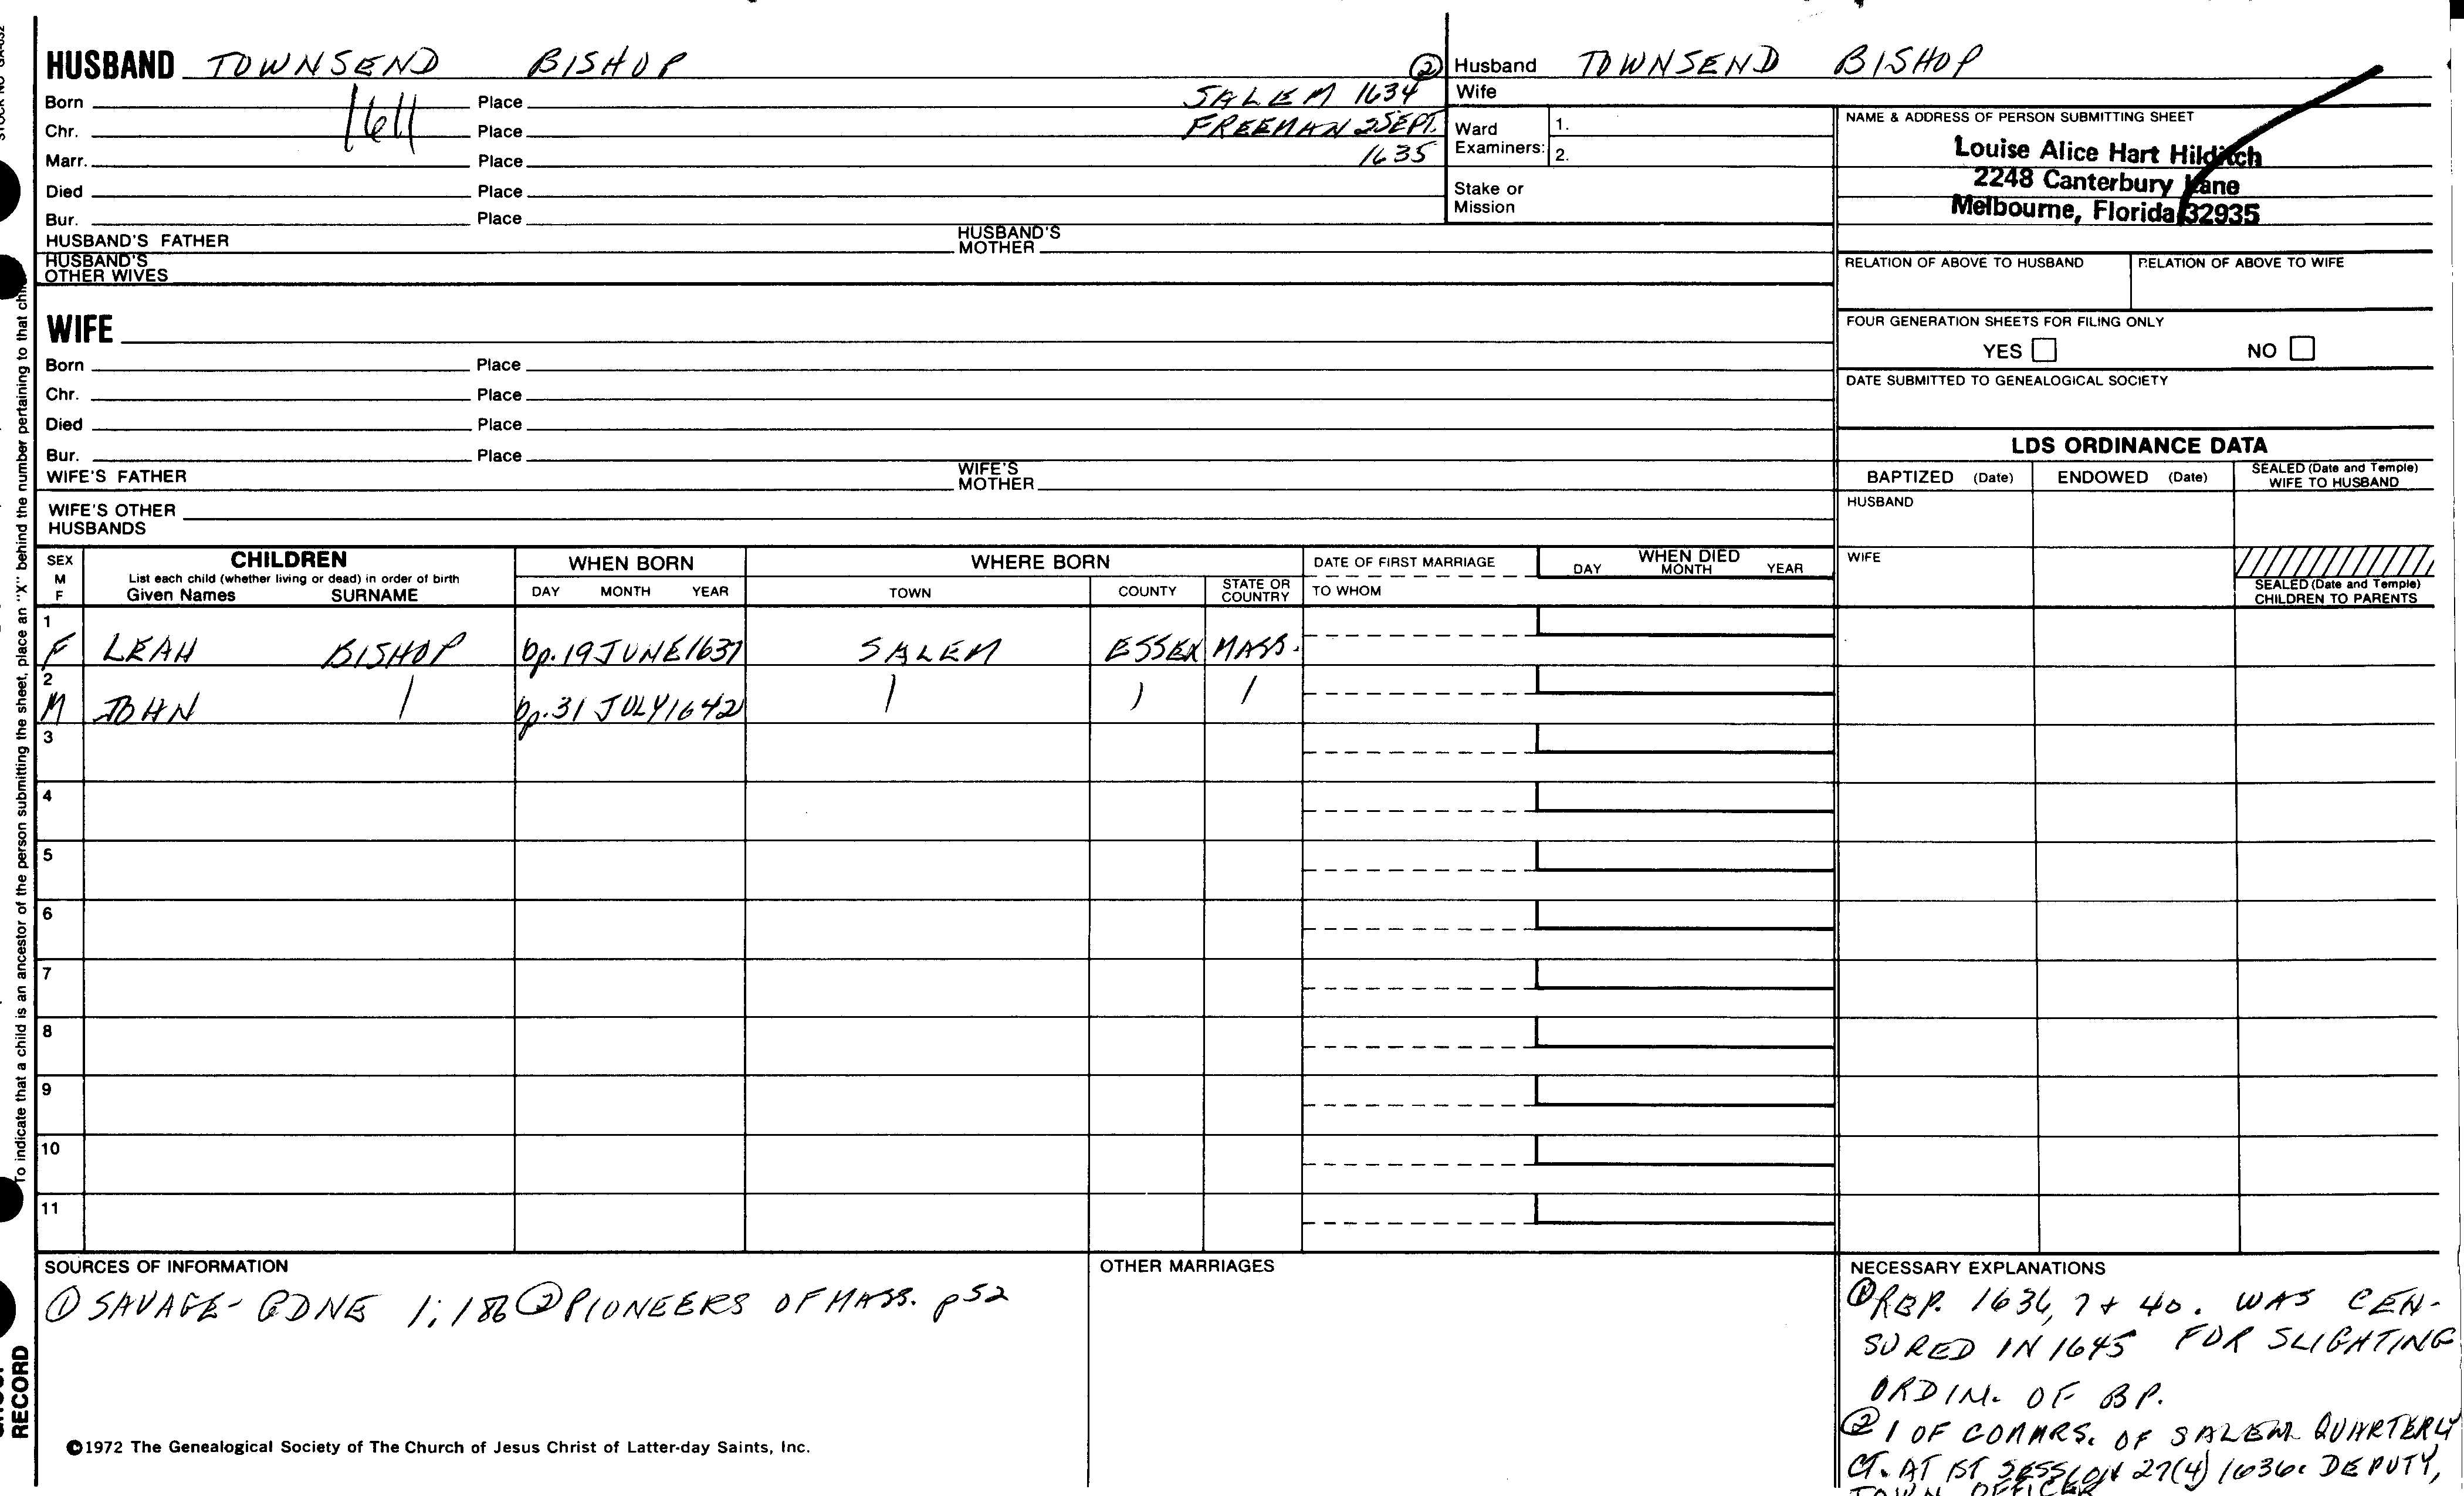 HUSBAND TOWNSEND BISHOP
Born 1611 Place
Chr. Place
Marr. Place
Died Place
Bur. Place
② SALEM 1634
FREEMAN 2 SEPT.
1635
HUSBAND'S FATHER HUSBAND'S MOTHER
HUSBAND'S OTHER WIVES
WIFE
Born Place
Chr. Place
Died Place
Bur. Place
WIFE'S FATHER WIFE'S MOTHER
WIFE'S OTHER HUSBANDS
Husband TOWNSEND BISHOP
Wife
Ward Examiners: 1.
2.
Stake or Mission
NAME & ADDRESS OF PERSON SUBMITTING SHEET
Louise Alice Hart Hilditch
2248 Canterbury Lane
Melbourne, Florida 32935
RELATION OF ABOVE TO HUSBAND RELATION OF ABOVE TO WIFE
FOUR GENERATION SHEETS FOR FILING ONLY
YES NO
DATE SUBMITTED TO GENEALOGICAL SOCIETY
LDS ORDINANCE DATA
BAPTIZED (Date) ENDOWED (Date) SEALED (Date and Temple) WIFE TO HUSBAND
HUSBAND
WIFE
SEALED (Date and Temple) CHILDREN TO PARENTS
SEX M F
CHILDREN
List each child (whether living or dead) in order of birth
Given Names SURNAME
WHEN BORN
DAY MONTH YEAR
WHERE BORN
TOWN COUNTY STATE OR COUNTRY
DATE OF FIRST MARRIAGE
TO WHOM
WHEN DIED
DAY MONTH YEAR
1
F LEAH BISHOP bp. 19 JUNE 1637 SALEM ESSEX MASS.
2
M JOHN bp. 31 JULY 1642
3
4
5
6
7
8
9
10
11
SOURCES OF INFORMATION
① SAVAGE - GDNE 1; 186 ② PIONEERS OF MASS. p52
OTHER MARRIAGES
NECESSARY EXPLANATIONS
① REP. 1636, 7 + 40. WAS CEN-
SURED IN 1645 FOR SLIGHTING
ORDIN. OF BP.
② 1 OF COMMRS. OF SALEM QUARTERLY
CT. AT 1ST SESSION 27(4) 1636. DEPUTY,
TOWN OFFICER
©1972 The Genealogical Society of The Church of Jesus Christ of Latter-day Saints, Inc.
To indicate that a child is an ancestor of the person submitting the sheet, place an "X" behind the number pertaining to that
RECORD